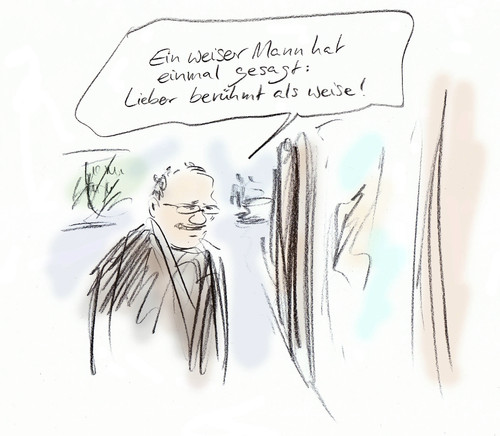 Ein weiser Mann hat
einmal gesagt:
Lieber berühmt als weise!